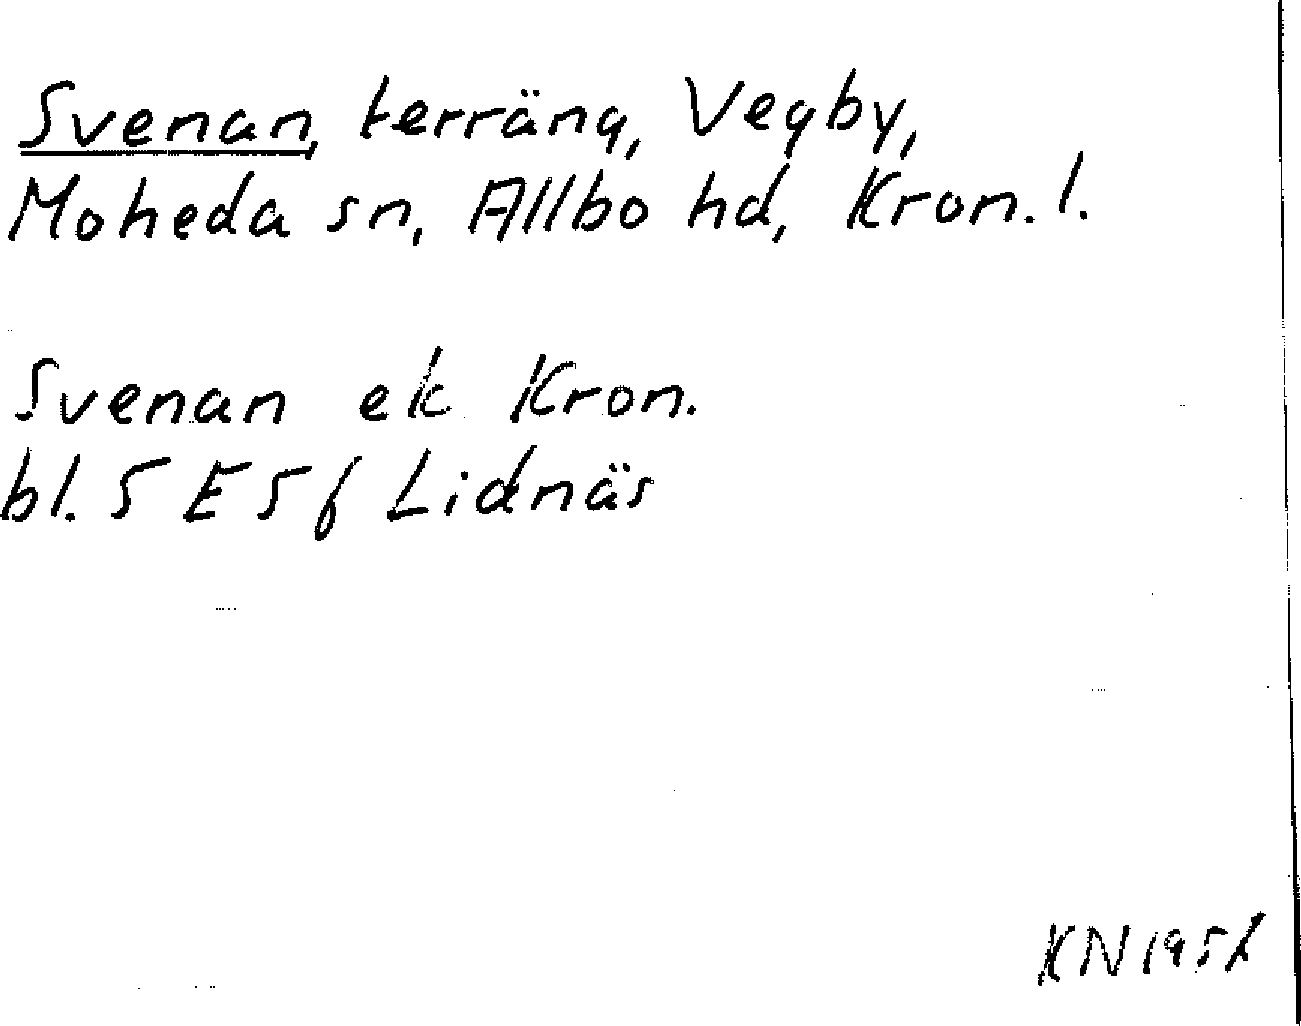 Svenan, terräng, Vegby,
Moheda sn, Allbo hd, Kron. l.
Svenan ek Kron.
bl. 5 E 5 f Lidnäs
KN